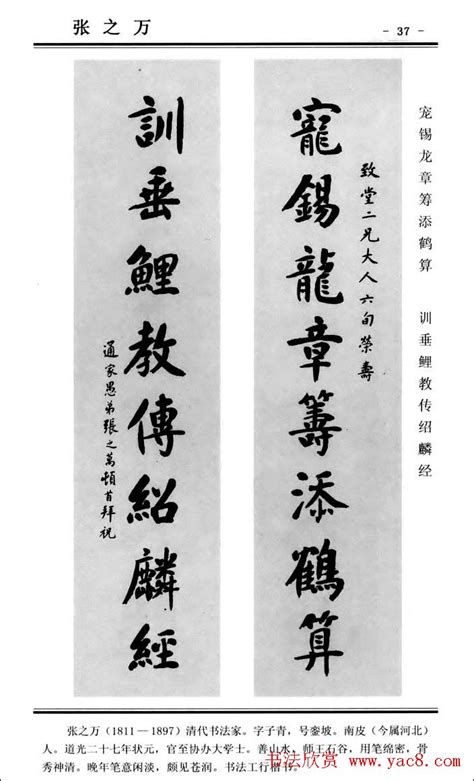 张之万
- 37 -
宠锡龙章筹添鹤算 训垂鲤教传绍麟经
致堂二兄大人六旬荣壽
寵錫龍章籌添鶴算
訓垂鯉教傳紹麟經
通家愚弟張之萬頓首拜祝
张之万（1811—1897）清代书法家。字子青，号銮坡。南皮（今属河北）
人。道光二十七年状元，官至协办大学士。善山水、师王石谷，用笔绵密，骨
秀神清。晚年笔意闲淡，颇见苍润。书法工行楷书。
书法欣赏 www.yac8.com